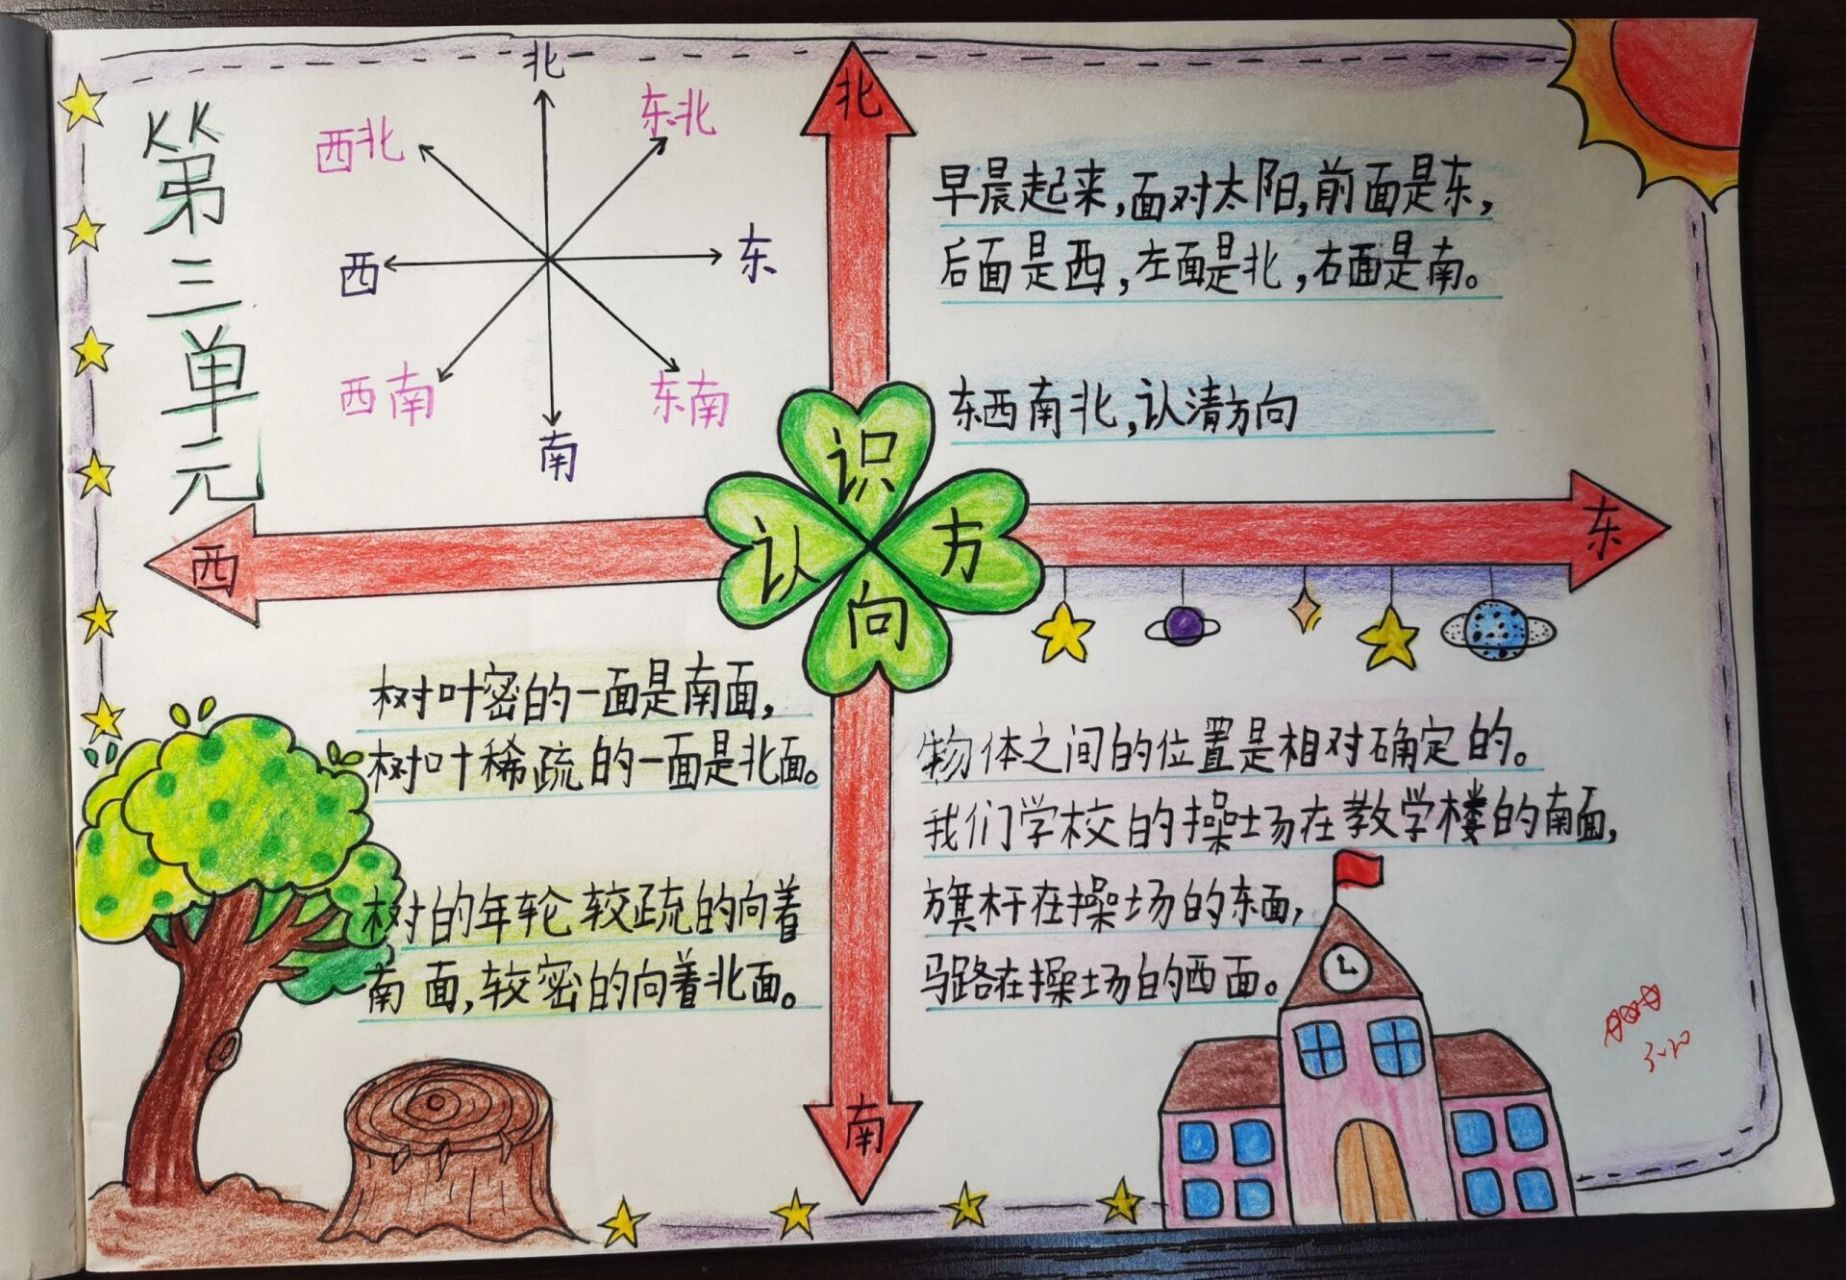 第三单元
北
西北
东北
西
东
西南
东南
南
北
早晨起来,面对太阳,前面是东,
后面是西,左面是北,右面是南。
东西南北,认清方向
西
认识方向
东
树叶密的一面是南面,
树叶稀疏的一面是北面。
树的年轮较疏的向着
南面,较密的向着北面。
物体之间的位置是相对确定的。
我们学校的操场在教学楼的南面,
旗杆在操场的东面,
马路在操场的西面。
南
3.20